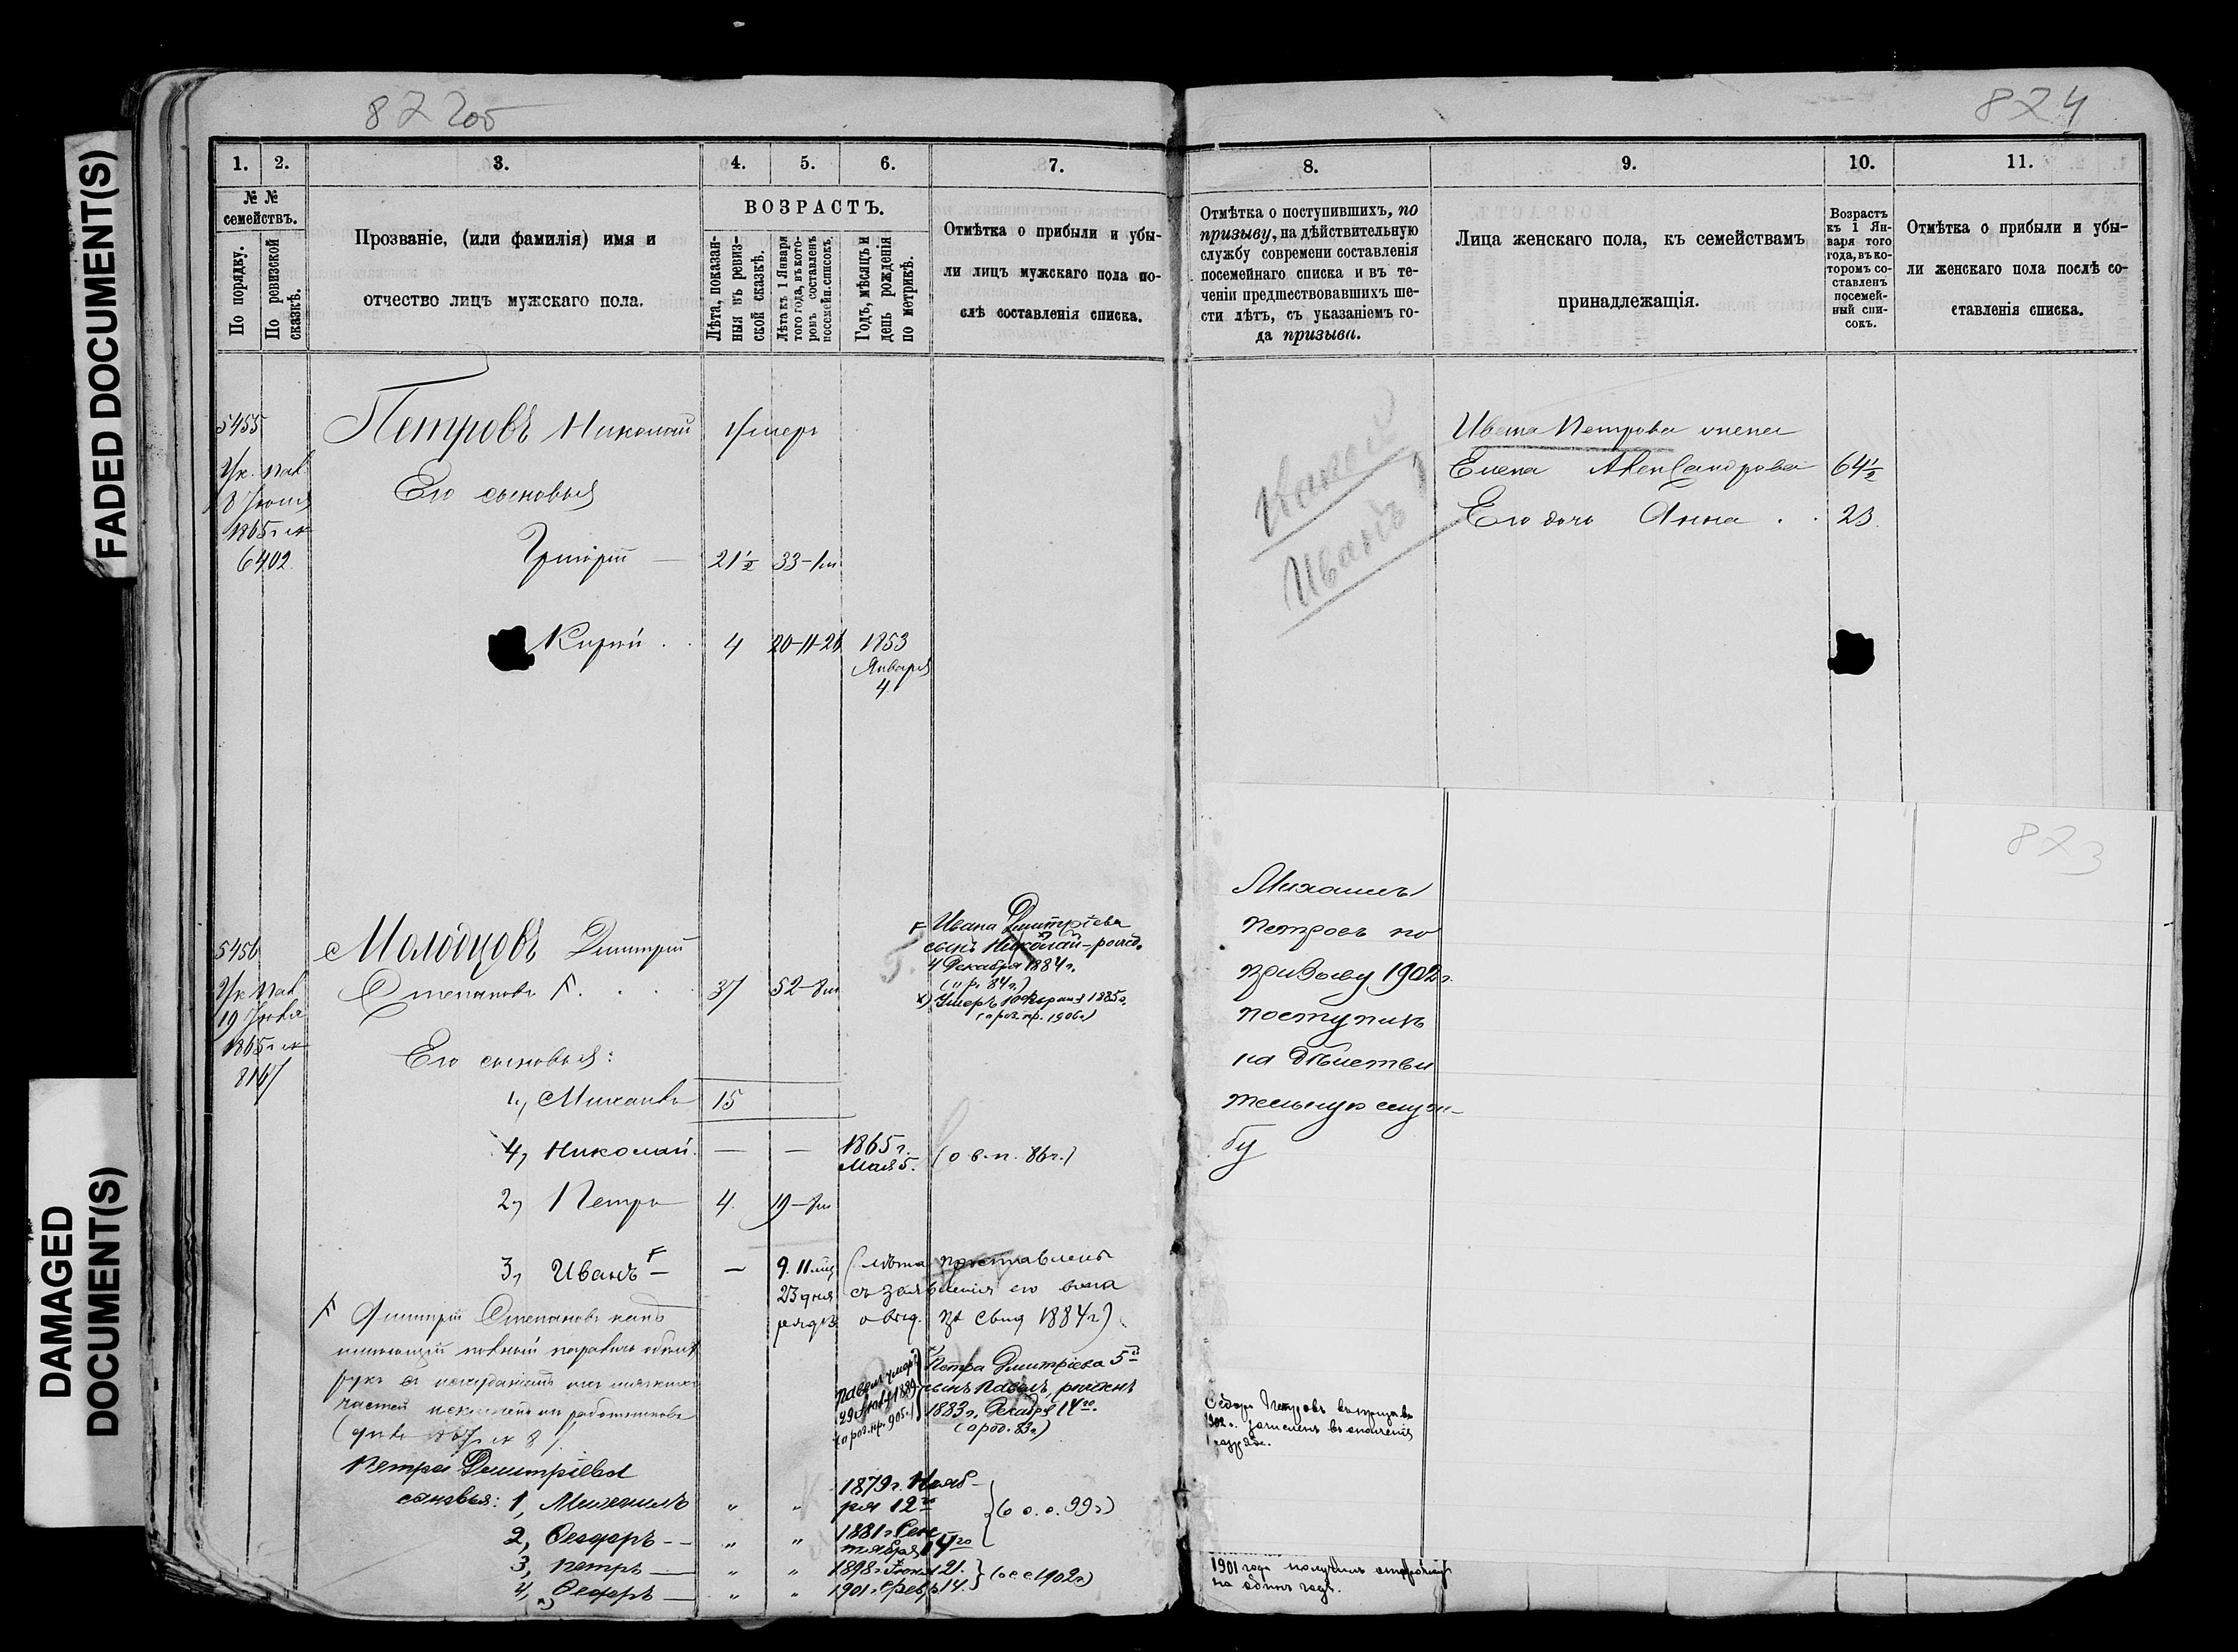 FADED DOCUMENT(S)
DAMAGED
DOCUMENT(S)
87 205
1.
2.
3.
4.
5.
6.
7.
№ №
семействъ.
По порядку.
По ревизской
сказкѣ.
Прозваніе, (или фамилія) имя и
отчество лицъ мужскаго пола.
ВОЗРАСТЪ.
Лѣта, показан-
ныя въ ревиз-
ской сказкѣ.
Лѣта къ 1 Января
того года, въ кото-
ромъ составленъ
посемейн. списокъ.
Годъ, мѣсяцъ и
день рожденія
по метрикѣ.
Отмѣтка о прибыли и убы-
ли лицъ мужскаго пола по-
слѣ составленія списка.
5455
Ук. пал.
8 Іюня
1865 г. №
6402
Петровъ Николай умеръ
Его сыновья
Григорій — 21½ 33-
Кирил . . 4 20-11-26 1853
Января
4
5456
Ук. пал.
19
1865 г. №
8167
Молодцовъ Димитрій
Степановъ F. . . . 37 52-
F Ивана Дмитріева
сынъ Николай – рожд.
4 Декабря 1884 г.
( р. 84 г.)
х) Умеръ 1885 г.
(о роз. пр. 1906 г.)
Его сыновья:
1, Михаилъ 15
4, Николай — — 1865 г.
Мая 5. (о в. п. 86 г.)
2, Петръ 4. 19-
3, Иванъ F — — 9. 11 мц
23 дня
(лѣта проставлены
съ заявленія его
1884 г.)
F Димитрій Степановъ какъ
(
Петра Дмитріева 5й
сынъ Павелъ, рожденъ
1883 г. Декабря 14го.
(о род. 83 г.)
Павелъ умеръ
29 1889
(о роз. пр. 905 г.)
Петра Дмитріева
сыновья: 1, Михаилъ " " 1879 г. Нояб-
ря 12го
(о о. о. 99 г.)
2, Ѳеодоръ -- " " 1881 г. Сен
тября 14го
3, Петръ — " " 1898 г. Іюня 21.
4, Ѳедоръ — " " 1901 г. февр. 14.
(о с с 1902 г.)
х)
824
8.
9.
10.
11.
Отмѣтка о поступившихъ, по
призыву, на дѣйствительную
службу современи составленія
посемейнаго списка и въ те-
ченіи предшествовавшихъ ше-
сти лѣтъ, съ указаніемъ го-
да призыва.
Лица женскаго пола, къ семействамъ
принадлежащія.
Возрастъ
къ 1 Ян-
варя того
года, въ ко-
торомъ со-
ставленъ
посемей-
ный спи-
сокъ.
Отмѣтка о прибыли и убы-
ли женскаго пола послѣ со-
ставленія списка.
Какой
Иванъ
Ивана Петрова жена
Елена Александрова 64½
Его дочь Анна . . 23.
823
Михаилъ
Петровъ по
призыву 1902 г.
поступилъ
на дѣйстви
тельную служ-
бу
Ѳедоръ Петровъ въ призывъ
1902 г. зачисленъ въ ополченіе
1 разряда.
1901 года получилъ отсрочку
на одинъ годъ.